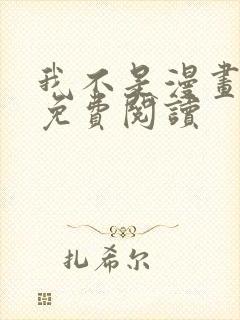 我不是漫畫
免費閱讀
扎希尔